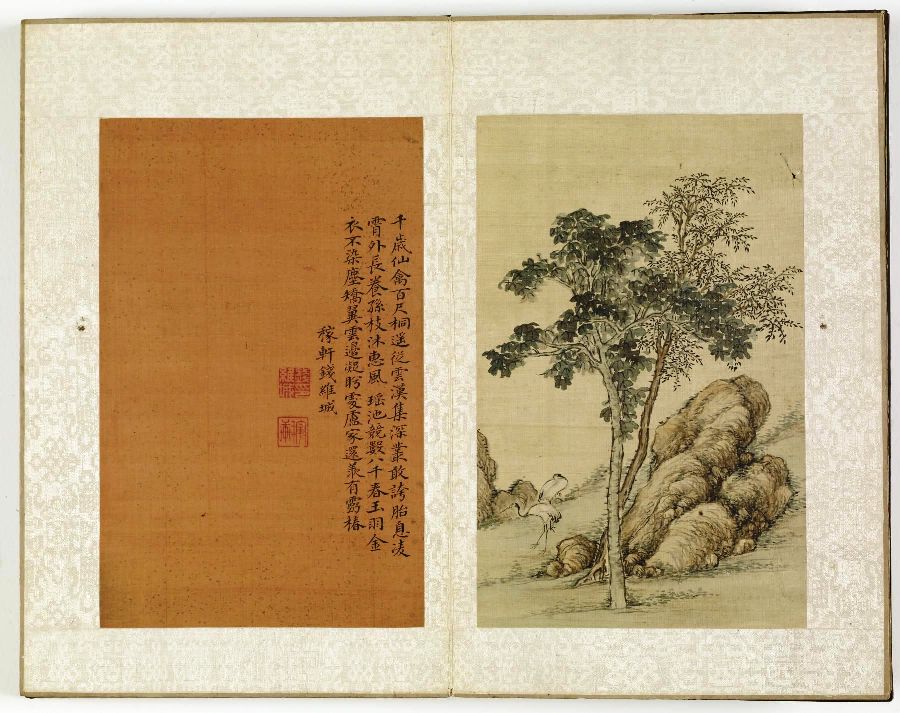 千歲仙禽百尺桐遥從雲漢集深叢敢誇胎息凌
霄外長養孫枝沐惠風瑶池競八千春玉羽金
衣不染塵矯翼雲邊凝盼處盧家還羨有靈椿
稼軒錢維城